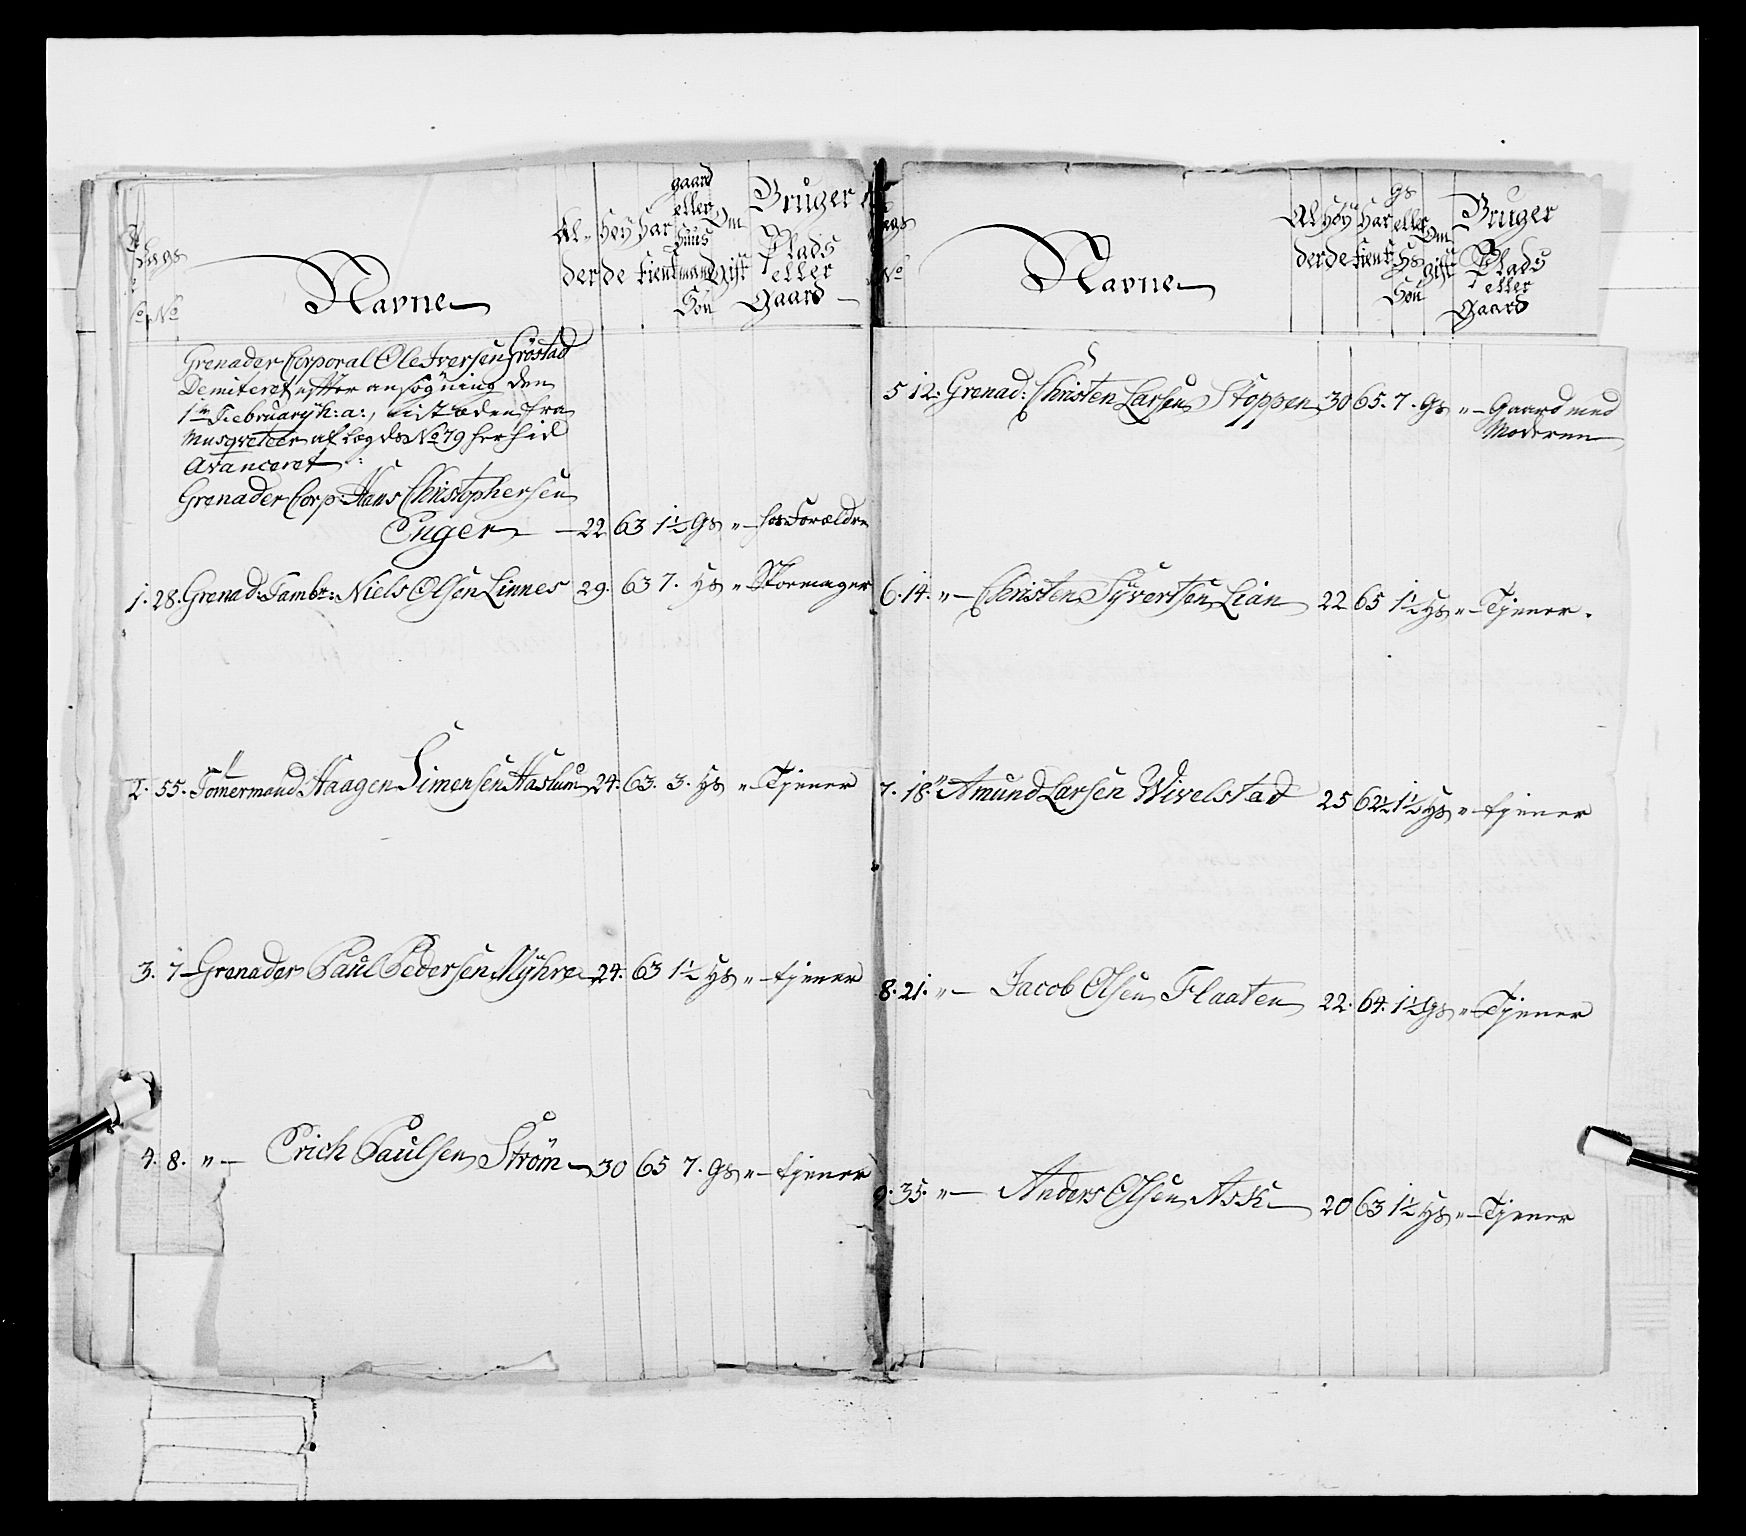 Lægs
No No
Navne
Al-
der
Høy
de
Har
tient
gaard
eller
Huus
mand
Søn
Om
Gift
Bruger
Plads
eller
Gaard
Grenader Corporal Ole Iversen Grøstad
Demiteret effter ansøgning den
1te Februarÿ h: a:, i stæden fra
Musqveteer af Lægds No 79 herhid
Avanceret
Grenader Corp: Hans Christophersen
Enger 22 63 1½ Gs " hos Forældre
1. 28. Grenad: Tambr: Niels Olsen Linnes 29. 63 7. Hs " Skomager
2. 55. Tømermand Haagen Simensen Haslum 24. 63. 3. Hs " Tjener
3. 7 Grenader Paul Pedersen Mÿhre 24. 63 1½ Hs " tjener
4. 8. " Erich Paulsen Strøm 30 65 7. Gs " tjener
Lægs
No
Navne
Al
der
Høy
de
Har
tient
Gs
eller
Hs
Søn
Om
gift
Bruger
Plads
eller
Gaard
5 12. Grenad: Christen Larsen Stoppen 30 65. 7. Gs " Gaard med
Moderen
6. 14. " Christen Syvertsen Lian 22 65 1½ Hs " Tjener.
7. 18. " Amund Larsen Wivelstad 25 62½ 1½ Hs " tjener
8. 21. " Jacob Olsen Flaaten 22. 64. 1½ Gs " Tjener
9. 35. " Anders Olsen Ask 20 63 1½ Hs " Tjener